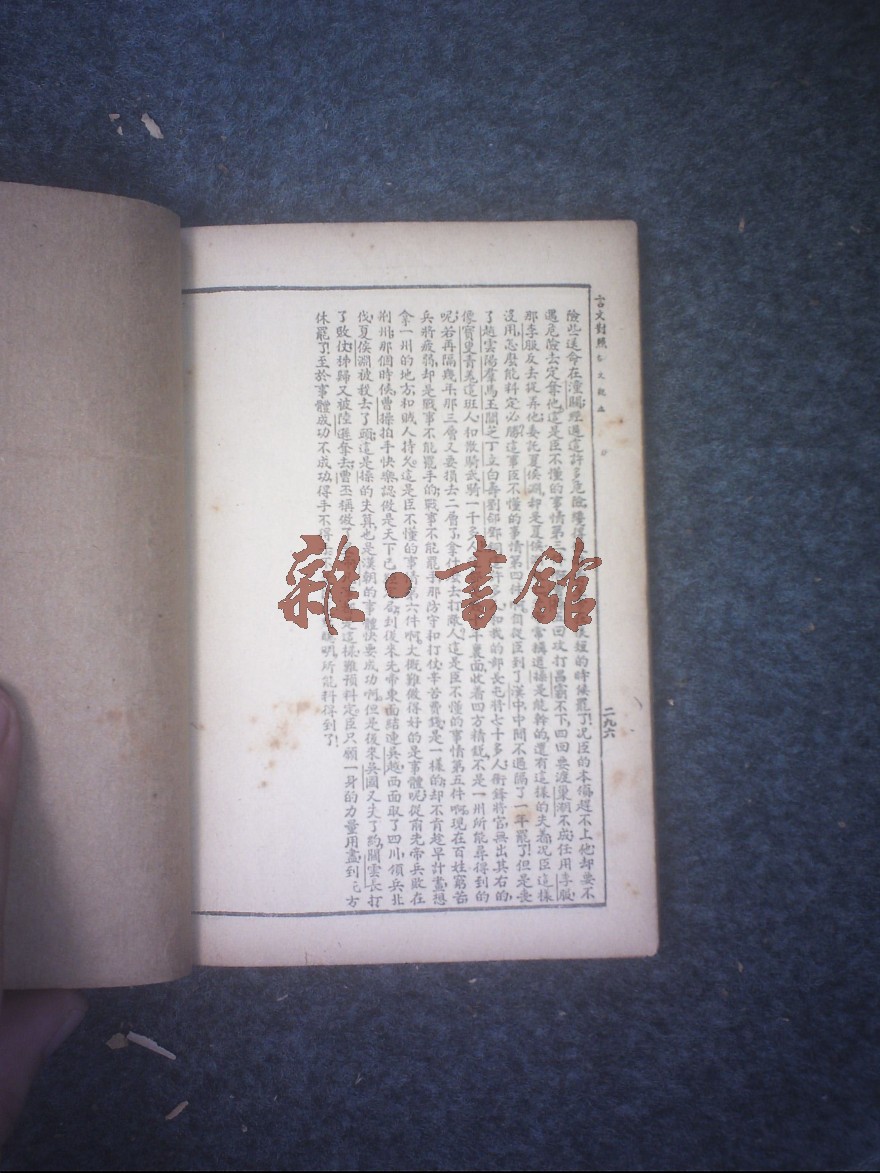 言文對照
二九六
險些送命在潼關經過這許多危險纔
短的時候罷了況臣的本領趕不上他却要不
遇危險去定奪他這是臣不懂的事情第三
回攻打昌霸不下四回要渡巢湖不成任用李服
那李服反去捉弄他委託夏侯淵却是夏侯
常稱道操是能幹的還有這樣的失着況臣這樣
沒用怎麼能料定必勝這事臣不懂的事情第四件
自從臣到了漢中中間不過隔了一年罷了但是喪
了趙雲陽羣馬玉閻芝丁立白壽劉郃鄧銅
和我的部長屯將七十多人衝鋒將官無出其右的
像賨叟青羌這班人和散騎武騎一千多人
年裏面收着四方精銳不是一州所能尋得到的
呢若再隔幾年那三層又要損去二層了拿什麼去打敵人這是臣不懂的事情第五件啊現在百姓窮苦
兵將疲弱却是戰事不能罷手的戰事不能罷手那防守和打仗辛苦費錢是一樣的却不肯趁早計畫想
拿一州的地方和賊人持久這是臣不懂的事情第六件啊大概難做得好的是事體呢從前先帝兵敗在
荆州那個時候曹操拍手快樂認做是天下已
到後來先帝東面結連吳越西面取了四川領兵北
伐夏侯淵被殺去了頭這是操的失算也是漢朝的事體快要成功啊但是後來吳國又失了約關雲長打
了敗仗秭歸又被陸遜奪去曹丕稱做了
是這樣難預料定臣只願一身的力量用盡到死方
休罷了至於事體成功不成功得手不得手
聰明所能料得到了
雜•書館